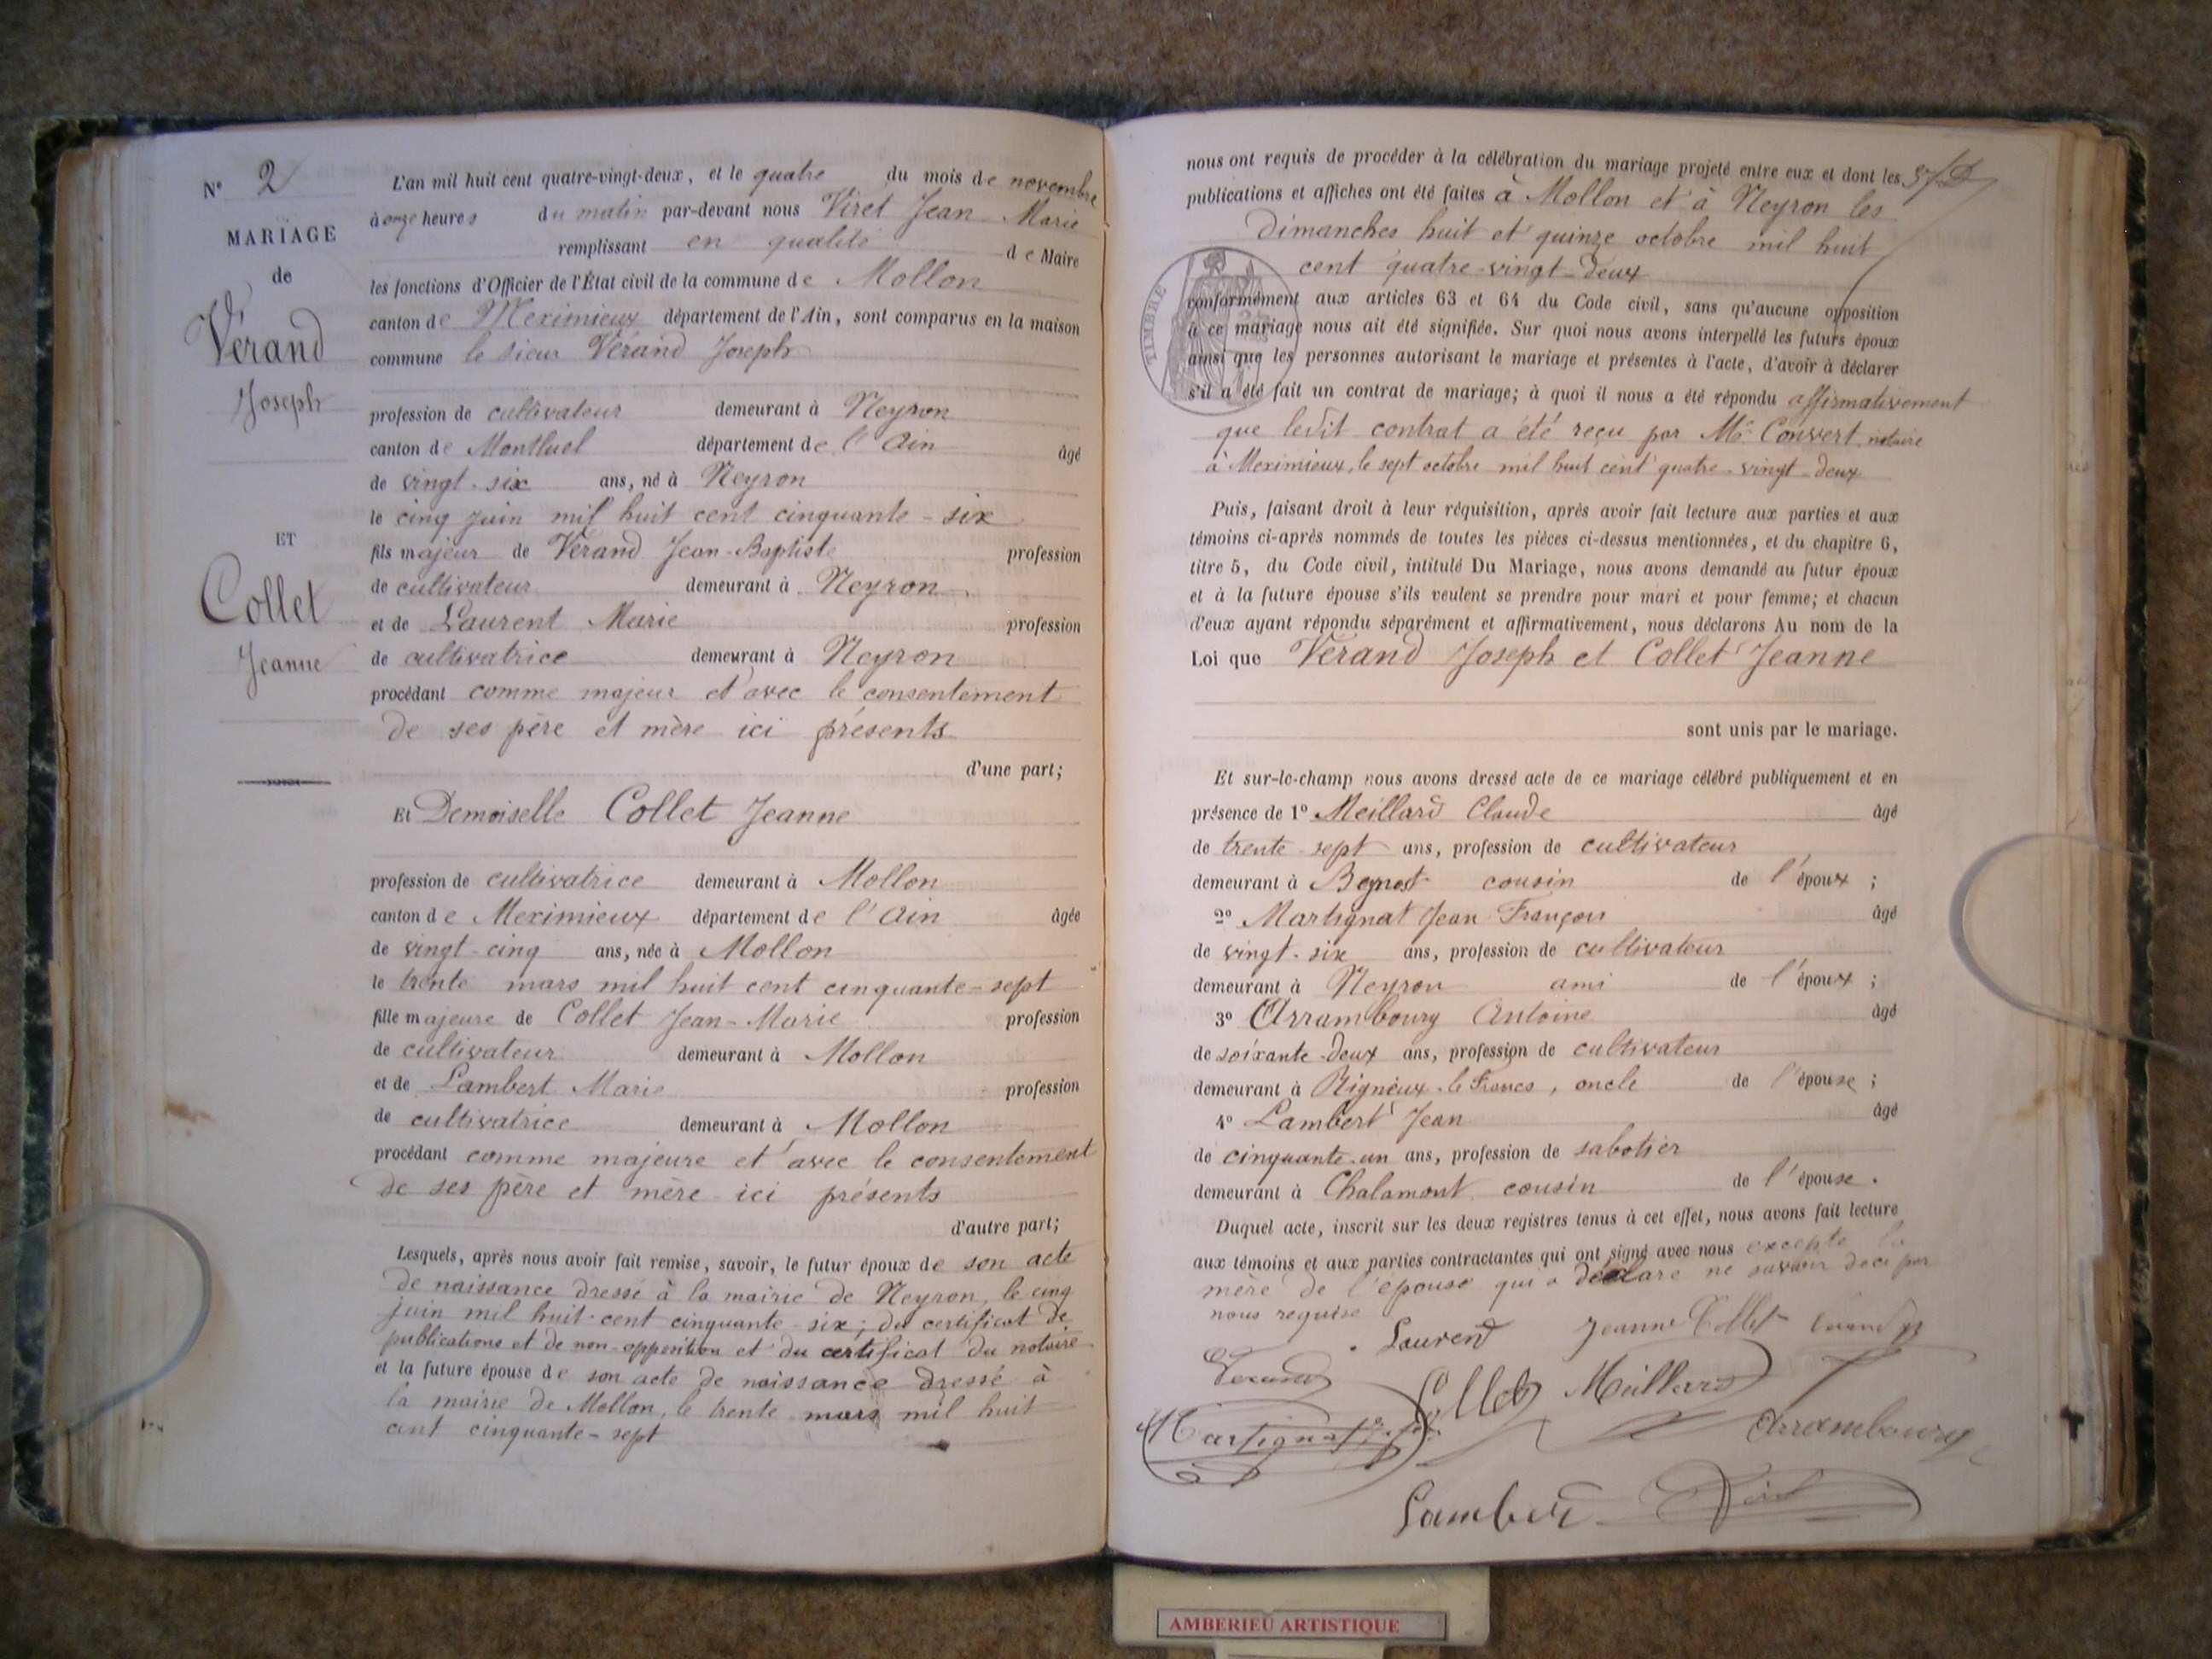 N° 2
MARIAGE
de
Vérand
Joseph
ET
Collet
Jeanne
L'an mil huit cent quatre-vingt-deux, et le quatre du mois de novembre
à onze heures du matin par-devant nous Viret Jean Marie
remplissant en qualité de Maire
les fonctions d'Officier de l'État civil de la commune de Mollon
canton de Meximieux département de l'Ain, sont comparus en la maison
commune le sieur Vérand Joseph
profession de cultivateur demeurant à Neyron
canton de Montluel département de l'Ain âgé
de vingt-six ans, né à Neyron
le cinq juin mil huit cent cinquante-six
fils majeur de Vérand Jean-Baptiste profession
de cultivateur demeurant à Neyron
et de Laurent Marie profession
de cultivatrice demeurant à Neyron
procédant comme majeur et avec le consentement
de ses père et mère ici présents
d'une part;
Et Demoiselle Collet Jeanne
profession de cultivatrice demeurant à Mollon
canton de Meximieux département de l'Ain âgée
de vingt-cinq ans, née à Mollon
le trente mars mil huit cent cinquante-sept
fille majeure de Collet Jean-Marie profession
de cultivateur demeurant à Mollon
et de Lambert Marie profession
de cultivatrice demeurant à Mollon
procédant comme majeure et avec le consentement
de ses père et mère ici présents
d'autre part;
Lesquels, après nous avoir fait remise, savoir, le futur époux de son acte
de naissance dressé à la mairie de Neyron, le cinq
juin mil huit-cent cinquante-six; du certificat de
publications et de non-opposition et du certificat du notaire
et la future épouse de son acte de naissance dressé à
la mairie de Mollon, le trente mars mil huit
cent cinquante-sept
nous ont requis de procéder à la célébration du mariage projeté entre eux et dont les
publications et affiches ont été faites à Mollon et à Neyron les
Dimanches huit et quinze octobre mil huit
cent quatre-vingt-deux
TIMBRE
conformément aux articles 63 et 64 du Code civil, sans qu'aucune opposition
à ce mariage nous ait été signifiée. Sur quoi nous avons interpellé les futurs époux
ainsi que les personnes autorisant le mariage et présentes à l'acte, d'avoir à déclarer
s'il a été fait un contrat de mariage; à quoi il nous a été répondu affirmativement
que ledit contrat a été reçu par Me Convert notaire
à Meximieux, le sept octobre mil huit cent quatre-vingt-deux
Puis, faisant droit à leur réquisition, après avoir fait lecture aux parties et aux
témoins ci-après nommés de toutes les pièces ci-dessus mentionnées, et du chapitre 6,
titre 5, du Code civil, intitulé Du Mariage, nous avons demandé au futur époux
et à la future épouse s'ils veulent se prendre pour mari et pour femme; et chacun
d'eux ayant répondu séparément et affirmativement, nous déclarons Au nom de la
Loi que Vérand Joseph et Collet Jeanne
sont unis par le mariage.
Et sur-le-champ nous avons dressé acte de ce mariage célébré publiquement et en
présence de 1° Meillard Claude âgé
de trente-sept ans, profession de cultivateur
demeurant à Beynost cousin de l'époux ;
2° Martignat Jean François âgé
de vingt-six ans, profession de cultivateur
demeurant à Neyron ami de l'époux ;
3° Arrambourg Antoine âgé
de soixante-deux ans, profession de cultivateur
demeurant à Rignieux-le-Franc, oncle de l'épouse ;
4° Lambert Jean âgé
de cinquante-un ans, profession de sabotier
demeurant à Chalamont, cousin de l'épouse.
Duquel acte, inscrit sur les deux registres tenus à cet effet, nous avons fait lecture
aux témoins et aux parties contractantes qui ont signé avec nous excepté la
mère de l'épouse qui a déclaré ne savoir de ce par
nous requise
Laurent Jeanne Collet
Verand Collet Meillard
Martignat Arrambourg
Lambert Viret
AMBERIEU ARTISTIQUE